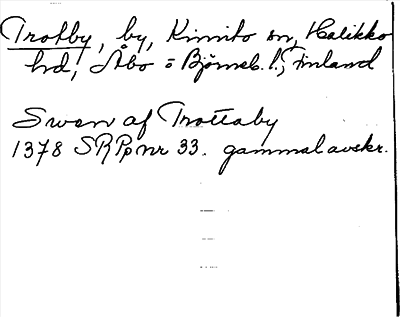 Trotby, by, Kimito sn, Halikko
hd, Åbo o Björneb. l., Finland
Swen af Trottaby
1378 SRPp nr 33. gammal avskr.